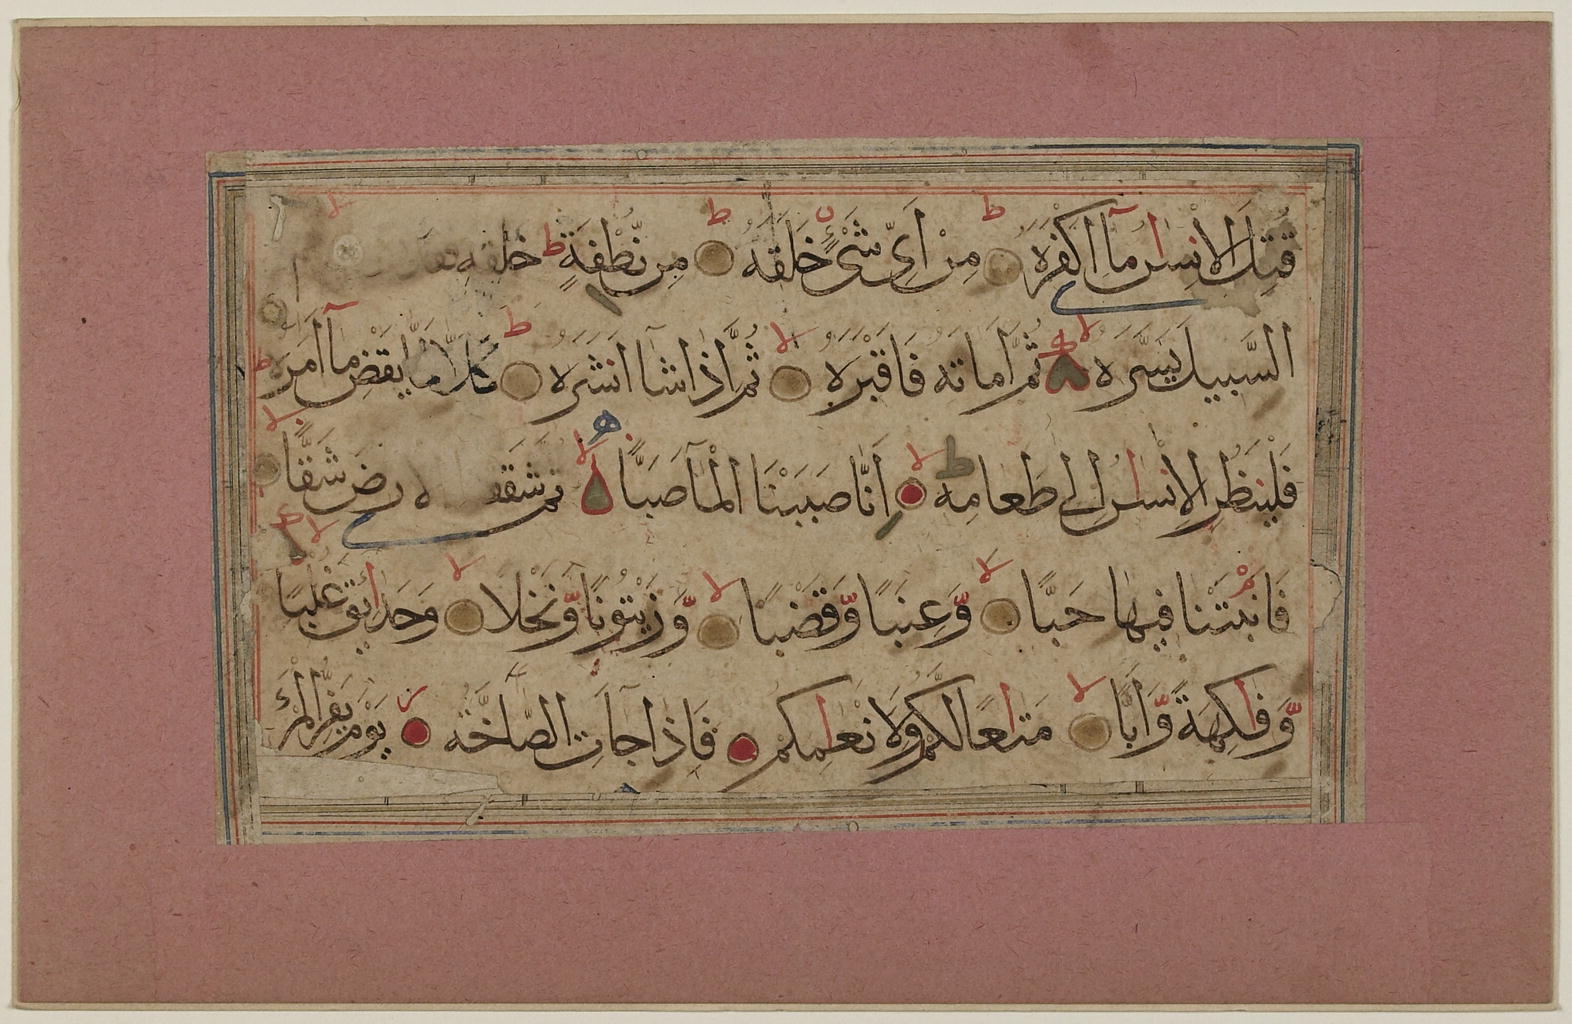 قُتِلَ الْاِنْسٰنُ مَآ اَكْفَرَهٗ مِنْ اَىِّ شَىْءٍ خَلَقَهٗ مِنْ نُّطْفَةٍ خَلَقَهٗ
السَّبِيلَ يَسَّرَهٗ ثُمَّ اَمَاتَهٗ فَاَقْبَرَهٗ ثُمَّ اِذَا شَآ اَنْشَرَهٗ كَلَّا لَمَّا يَقْضِ مَآ اَمَرَهٗ
فَلْيَنْظُرِ الْاِنْسٰنُ اِلٰى طَعَامِهٖ اَنَّا صَبَبْنَا الْمَآ صَبًّا ثم شَقَقـ رضَ شَقًّا
فَاَنْبَتْنَا فِيهَا حَبًّا وَّعِنَبًا وَّقَضْبًا وَّزَيْتُونًا وَّنَخْلًا وَحَدَائِقَ غُلْبًا
وَّفٰكِهَةً وَّاَبًّا مَتٰعًا لَكُمْ وَلِاَنْعٰمِكُمْ فَاِذَا جَآتِ الصَّآخَّةُ يَوْمَ يَفِرُّ الْمَرْءُ